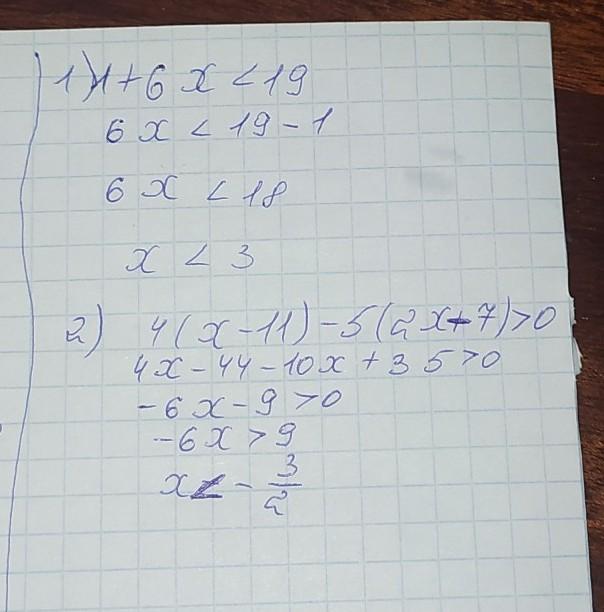 1) 1+6x<19
6x<19-1
6x<18
x<3
2) 4(x-11)-5(2x-7)>0
4x-44-10x+35>0
-6x-9>0
-6x>9
x<-3/2